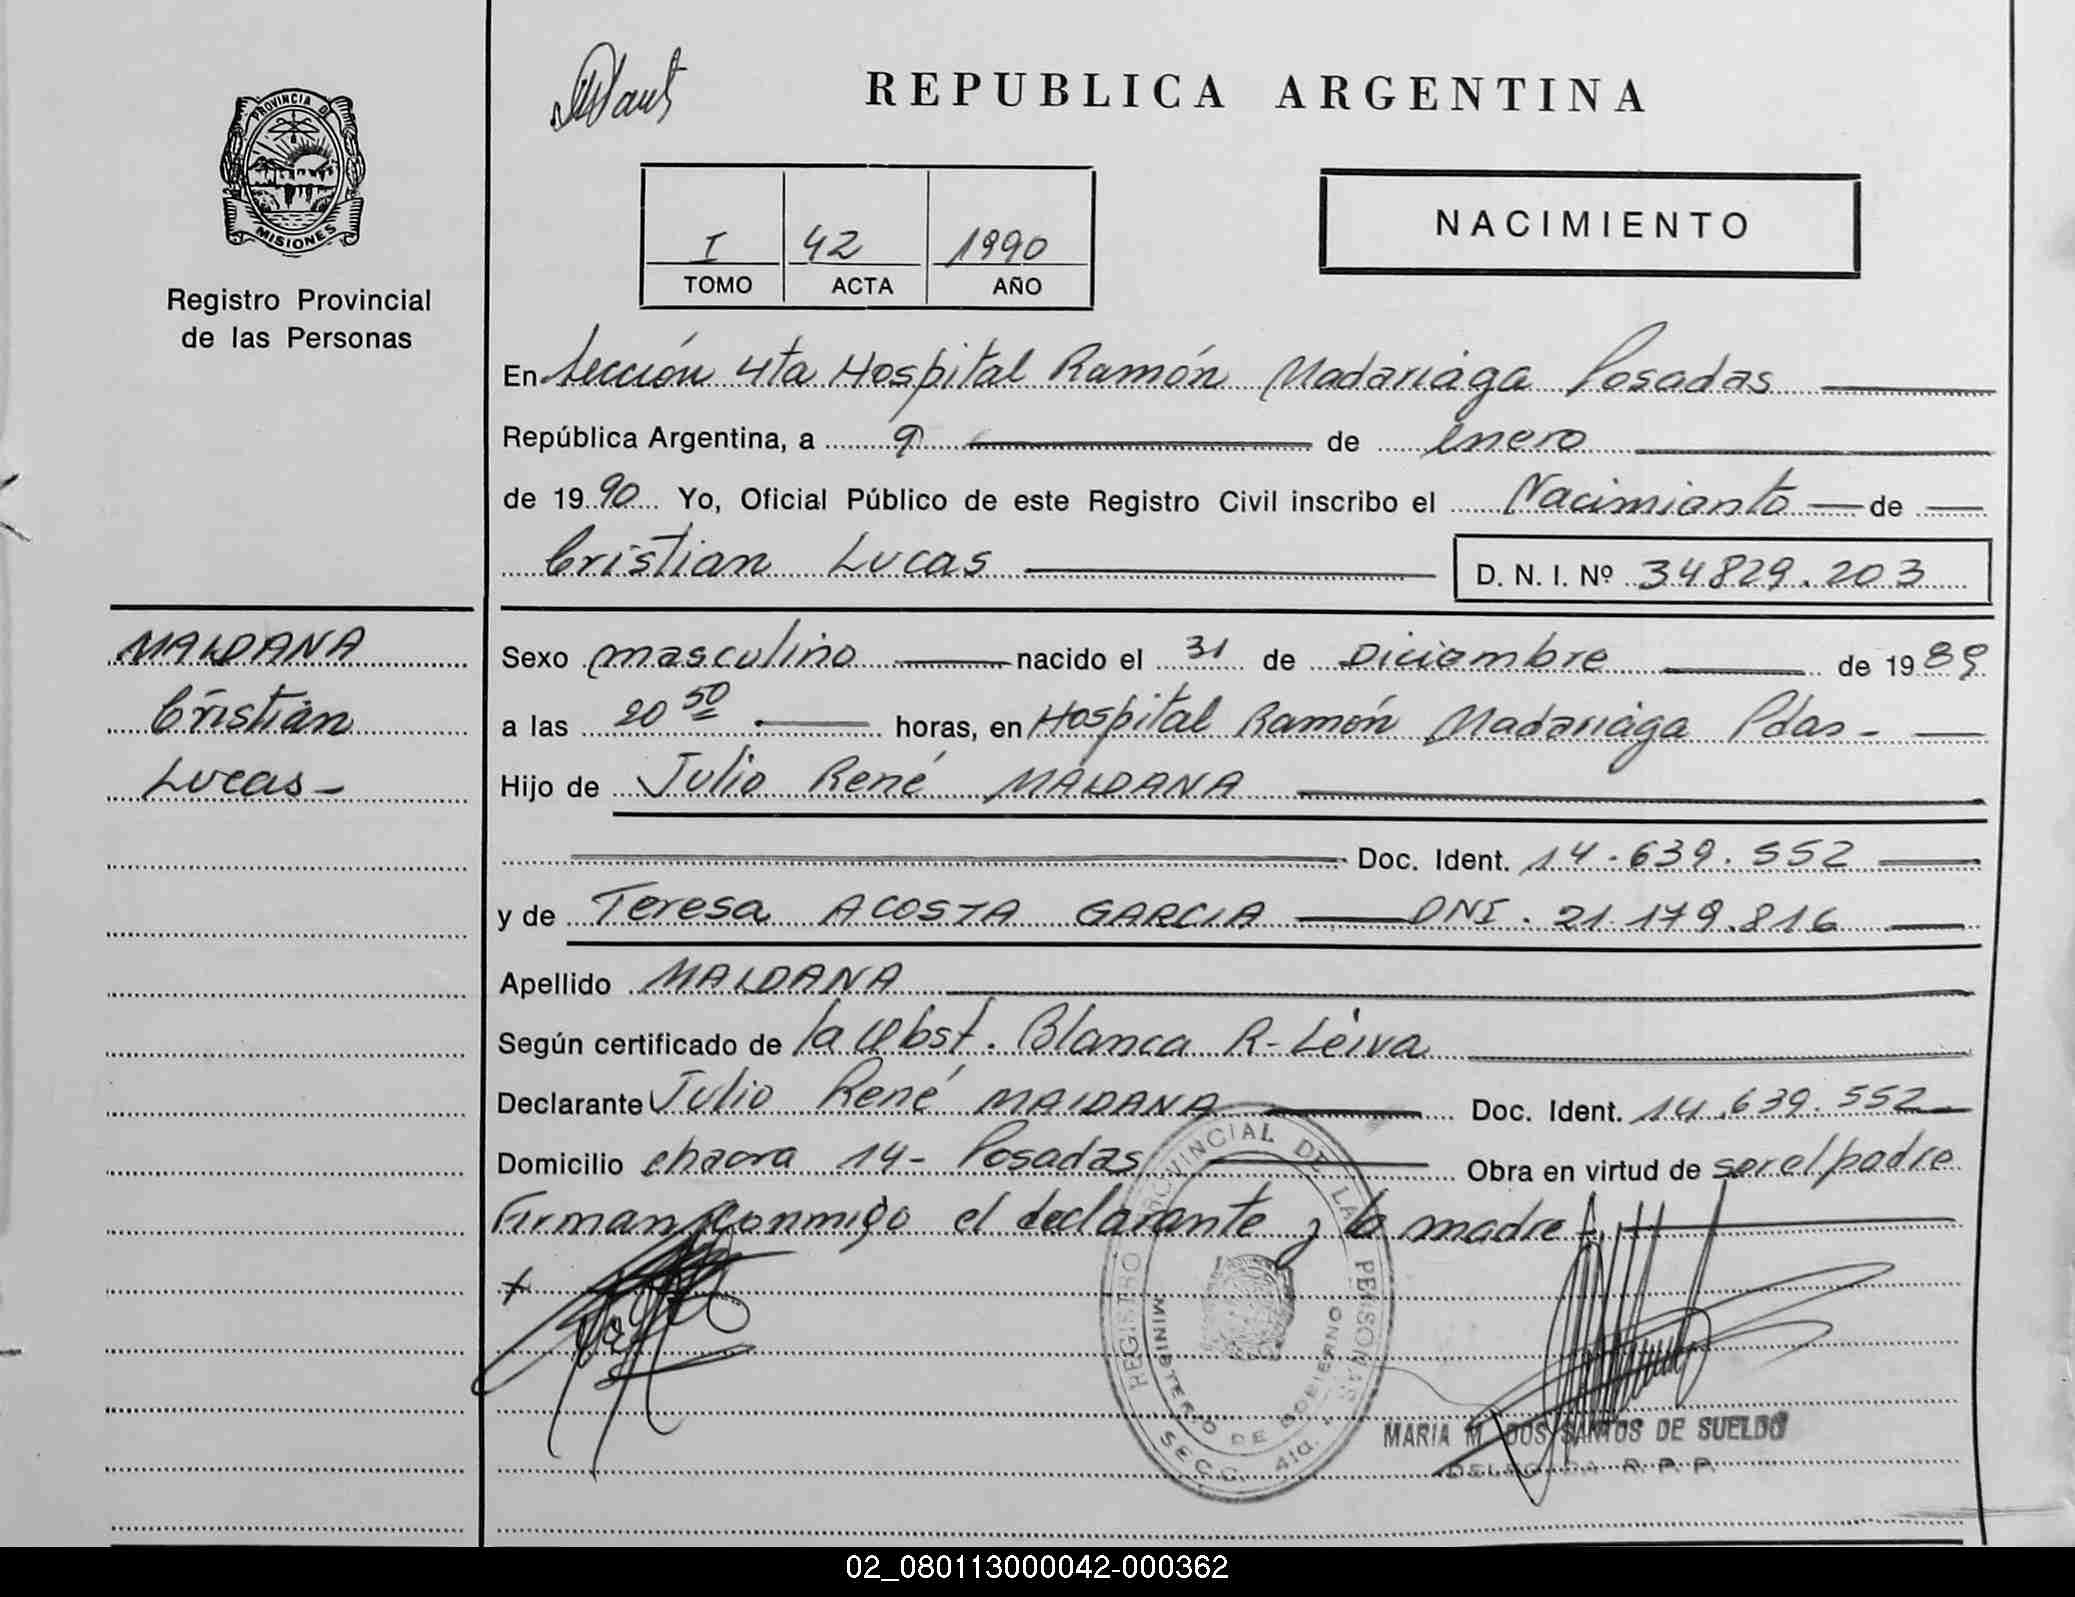 REPUBLICA ARGENTINA
PROVINCIA DE
MISIONES
Registro Provincial
de las Personas
I 42 1990
TOMO ACTA AÑO
NACIMIENTO
En Sección 4ta Hospital Ramón Madariaga Posadas
República Argentina, a 9 de enero
de 1990 Yo, Oficial Público de este Registro Civil inscribo el Nacimiento de
Cristian Lucas D. N. I. Nº 34829.203
MALDANA
Cristian
Lucas-
Sexo masculino nacido el 31 de Diciembre de 1989
a las 20 50 horas, en Hospital Ramón Madariaga Pdas-
Hijo de Julio René MALDANA
Doc. Ident. 14.639.552
y de Teresa ACOSTA GARCIA DNI. 21.179.816
Apellido MALDANA
Según certificado de la Obst. Blanca R- Leiva
Declarante Julio René MALDANA Doc. Ident. 14.639.552
Domicilio chacra 14- Posadas Obra en virtud de ser el padre
Firman conmigo el declarante y la madre
REGISTRO PROVINCIAL DE LAS PERSONAS
MINISTERIO DE GOBIERNO
SECC. 4ta.
MARIA M. DOS SANTOS DE SUELDO
DELEGADA R. P. P.
02_080113000042-000362